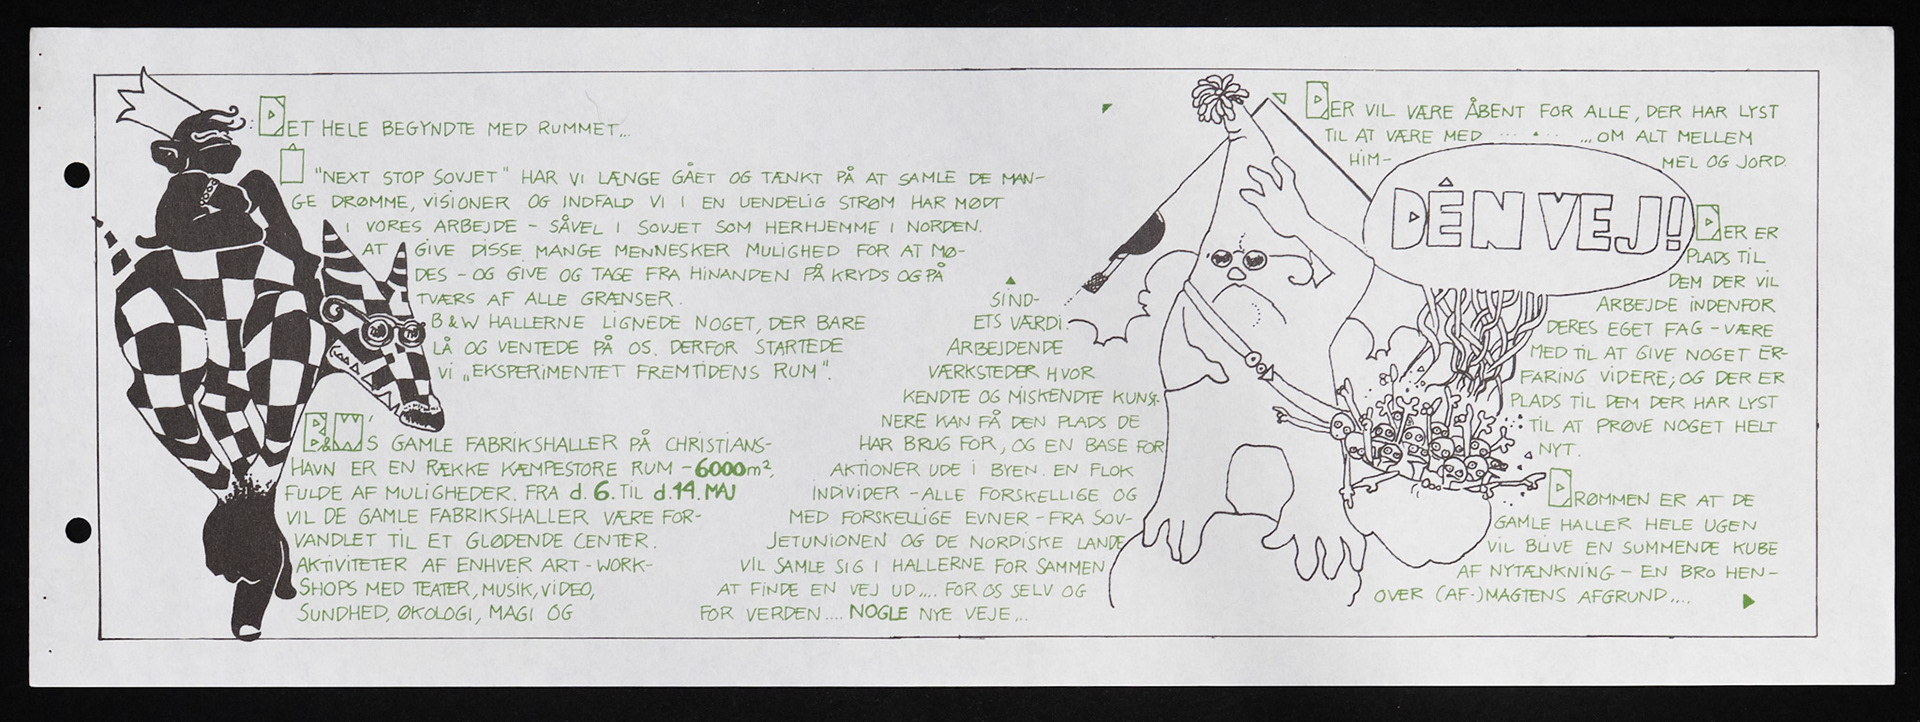 DET HELE BEGYNDTE MED RUMMET...
I "NEXT STOP SOVJET" HAR VI LÆNGE GÅET OG TÆNKT PÅ AT SAMLE DE MAN-
GE DRØMME, VISIONER OG INDFALD VI I EN UENDELIG STRØM HAR MØDT
I VORES ARBEJDE - SÅVEL I SOVJET SOM HERHJEMME I NORDEN.
AT GIVE DISSE MANGE MENNESKER MULIGHED FOR AT MØ-
DES - OG GIVE OG TAGE FRA HINANDEN PÅ KRYDS OG PÅ
TVÆRS AF ALLE GRÆNSER.
B&W HALLERNE LIGNEDE NOGET, DER BARE
LÅ OG VENTEDE PÅ OS. DERFOR STARTEDE
VI „EKSPERIMENTET FREMTIDENS RUM".
B&W'S GAMLE FABRIKSHALLER PÅ CHRISTIANS-
HAVN ER EN RÆKKE KÆMPESTORE RUM - 6000m²,
FULDE AF MULIGHEDER. FRA d. 6. TIL d. 14. MAJ
VIL DE GAMLE FABRIKSHALLER VÆRE FOR-
VANDLET TIL ET GLØDENDE CENTER.
AKTIVITETER AF ENHVER ART - WORK-
SHOPS MED TEATER, MUSIK, VIDEO,
SUNDHED, ØKOLOGI, MAGI OG
SIND-
ETS VÆRDI.
ARBEJDENDE
VÆRKSTEDER HVOR
KENDTE OG MISKENDTE KUNST-
NERE KAN FÅ DEN PLADS DE
HAR BRUG FOR, OG EN BASE FOR
AKTIONER UDE I BYEN. EN FLOK
INDIVIDER - ALLE FORSKELLIGE OG
MED FORSKELLIGE EVNER - FRA SOV-
JETUNIONEN OG DE NORDISKE LANDE
VIL SAMLE SIG I HALLERNE FOR SAMMEN
AT FINDE EN VEJ UD.... FOR OS SELV OG
FOR VERDEN.... NOGLE NYE VEJE...
DER VIL VÆRE ÅBENT FOR ALLE, DER HAR LYST
TIL AT VÆRE MED ... ...OM ALT MELLEM
HIM- MEL OG JORD.
DÉN VEJ!
DER ER
PLADS TIL
DEM DER VIL
ARBEJDE INDENFOR
DERES EGET FAG - VÆRE
MED TIL AT GIVE NOGET ER-
FARING VIDERE; OG DER ER
PLADS TIL DEM DER HAR LYST
TIL AT PRØVE NOGET HELT
NYT.
DRØMMEN ER AT DE
GAMLE HALLER HELE UGEN
VIL BLIVE EN SUMMENDE KUBE
AF NYTÆNKNING - EN BRO HEN-
OVER (AF-)MAGTENS AFGRUND....